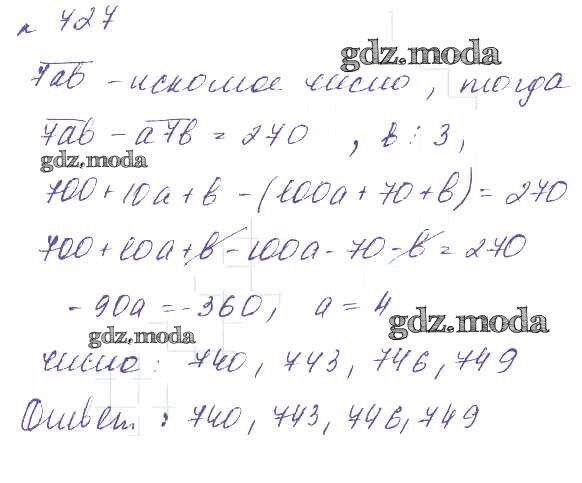 № 427
gdz.moda
7ab - искомое число, тогда
7ab - a7b = 270 , b ⋮ 3,
gdz.moda
700 + 10a + b - (100a + 70 + b) = 270
700 + 10a + b - 100a - 70 - b = 270
- 90a = -360, a = 4
gdz.moda
gdz.moda
число: 740, 743, 746, 749
Ответ: 740, 743, 746, 749